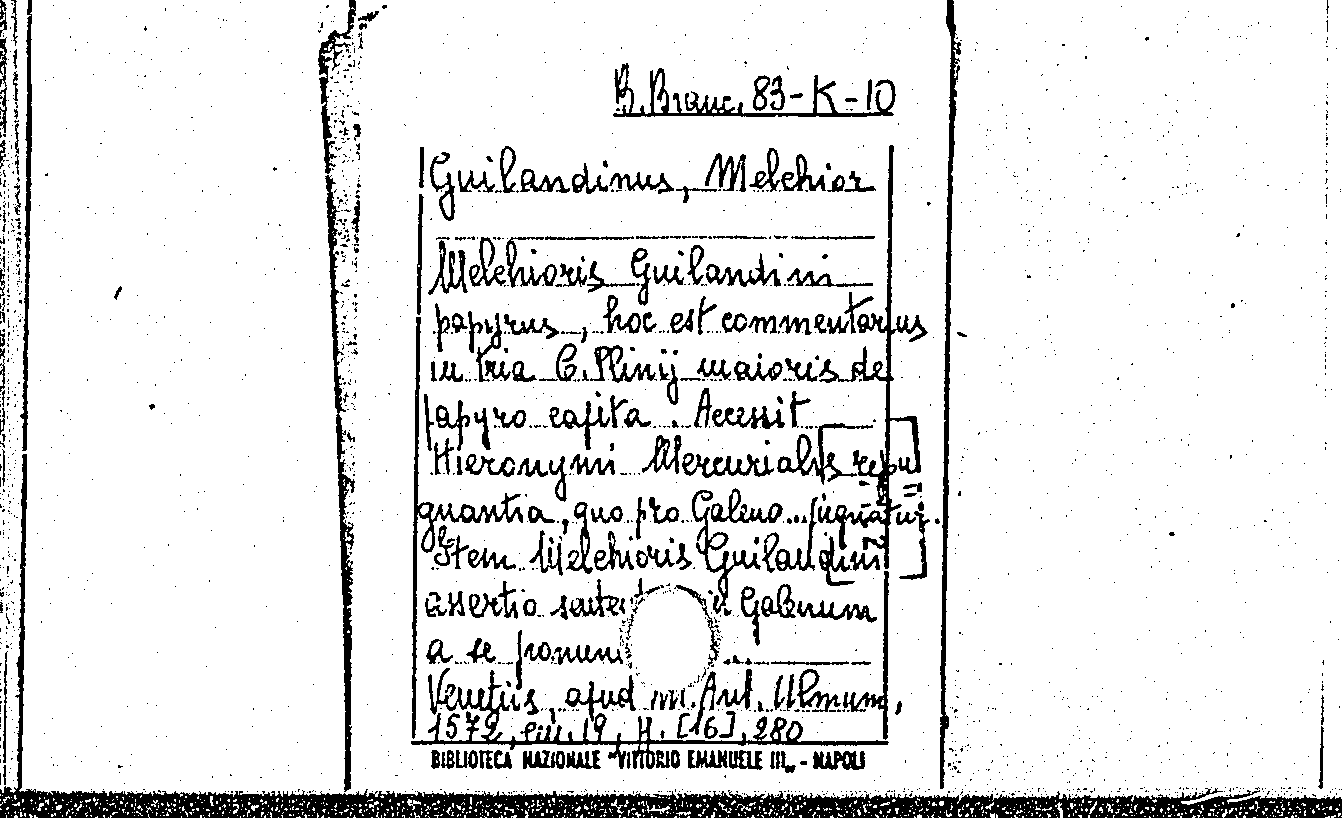 B. Branc. 83-K-10
Guilandinus, Melchior
Melchioris Guilandini
papyrus, hoc est commentarius
in tria C. Plinij maioris de
papyro capita. Accessit
Hieronymi Mercurialis repu
gnantia, quo pro Galeno... pugnatur.
Item Melchioris Guilandini
assertio in Galenum
a se
Venetiis, apud M. Ant. Ulmum,
1572, cm. 19, ff. [16], 280
BIBLIOTECA NAZIONALE "VITTORIO EMANUELE III" - NAPOLI